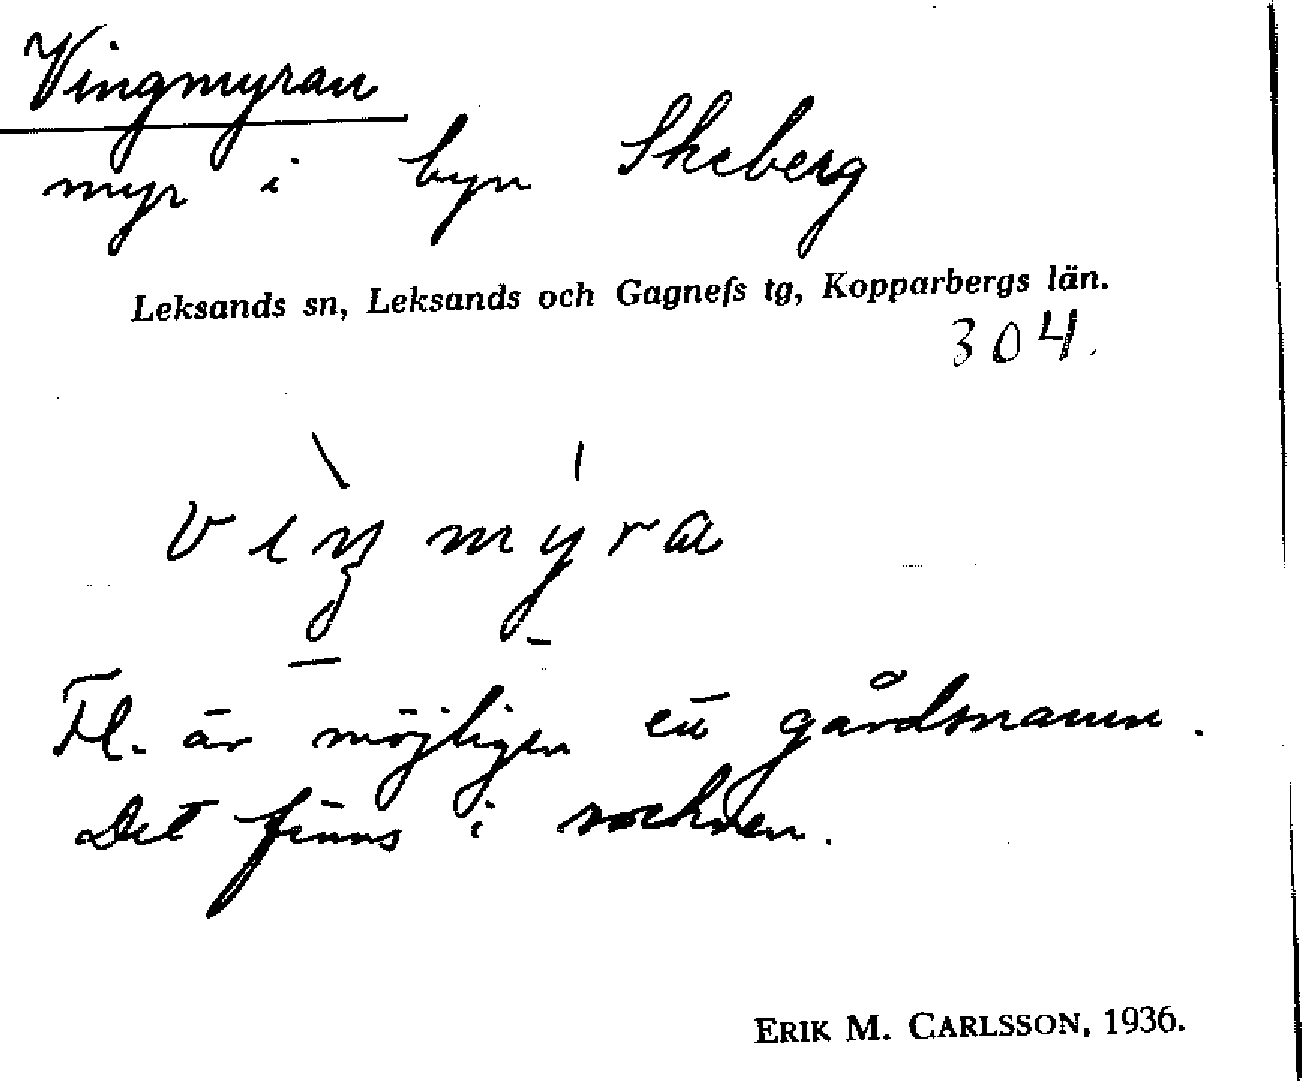 Vingmyran
myr i byn Skeberg
Leksands sn, Leksands och Gagnefs tg, Kopparbergs län.
304.
viŋmyra
Fl. är möjligen ett gårdsnamn.
Det finns i socknen.
ERIK M. CARLSSON, 1936.